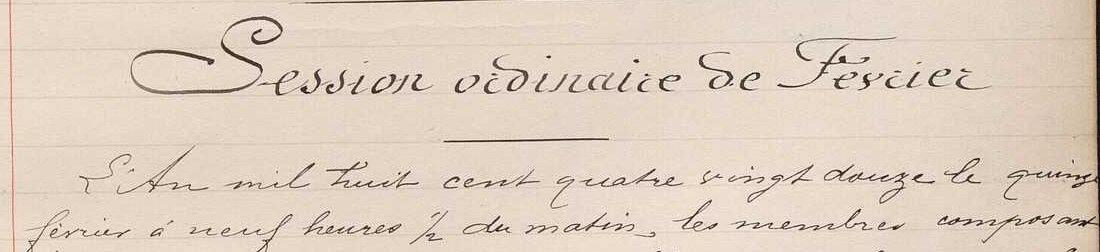 Session ordinaire de Février
L'An mil huit cent quatre vingt douze le quinze
février à neuf heures 1/2 du matin, les membres composant